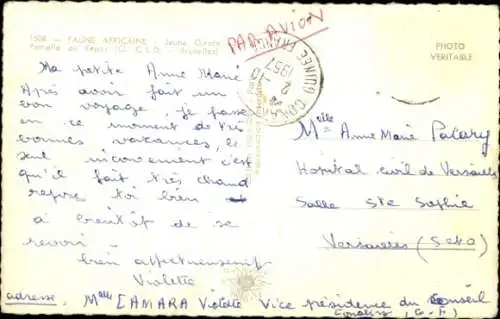 1508 - FAUNE AFRICAINE - Jeune Girafe
PAR AVION
GUINÉE FRANÇAISE
2 -10
1957
PHOTO
VERITABLE
Ma petite Anne Marie
Après avoir fait un
bon voyage, je passe
en ce moment de très
bonnes vacances, le
seul inconvenient c'est
qu'il fait très chaud
repose toi bien
à bientôt de se
revoir
bien affectueusement
Violette
Melle Anne Marie
Hopital Civil de Versailles
Salle Ste Sophie
Versailles (S&O)
adresse, Melle CAMARA Violette Vice présidence du Conseil
Conakry (G.F)